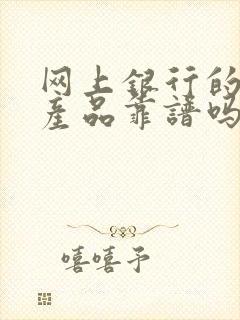 网上银行的
产品靠谱吗
嘻嘻予